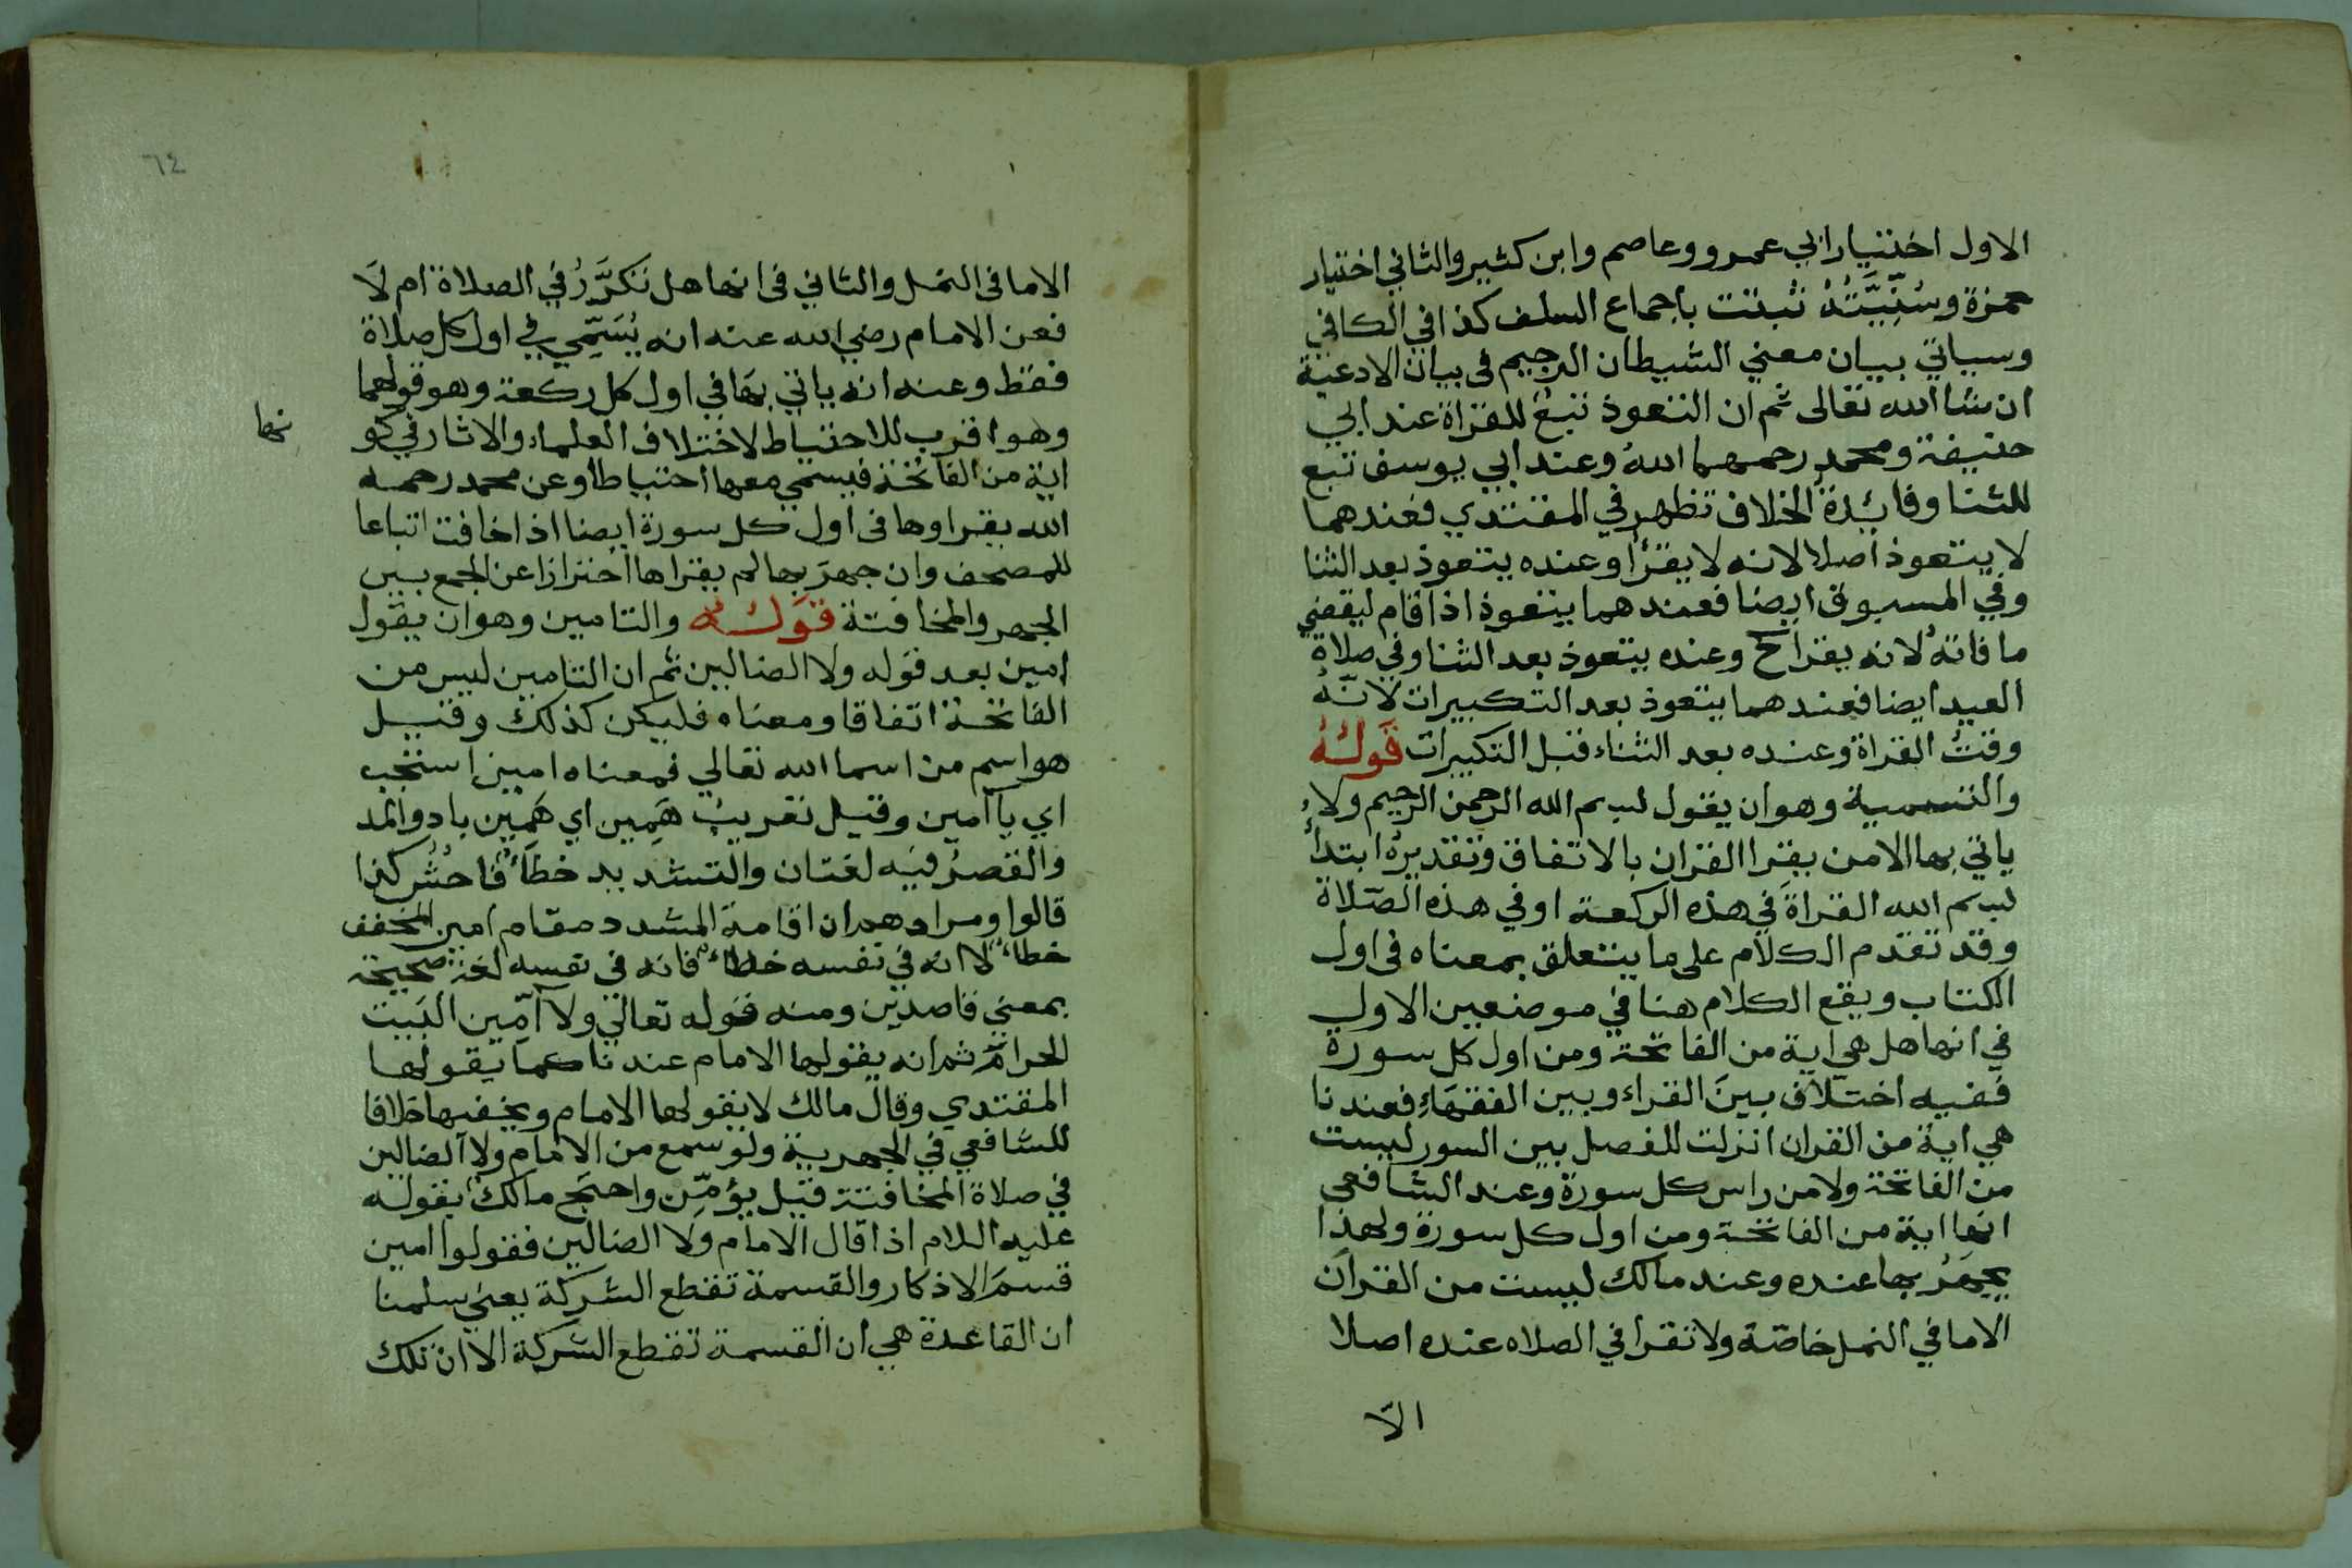 الاول اختيار ابي عمرو وعاصم وابن كثير والثاني اختيار
حمزة وسُنِّيَّتُهُ ثبتت باجماع السلف كذا في الكافي
وسياتي بيان معني الشيطان الرجيم في بيان الادعية
ان شا الله تعالى ثم ان التعوذ تبع للقراة عند ابي
حنيفة ومحمد رحمهما الله وعند ابي يوسف تبع
للثنا وفائدة الخلاف تظهر في المقتدي فعندهما
لا يتعوذ اصلا لانه لا يقرأ وعنده يتعوذ بعد الثنا
وفي المسبوق ايضا فعندهما يتعوذ اذا قام ليقضي
ما فاته لانه يقرا ح وعنده يتعوذ بعد الثنا وفي صلاة
العيد ايضا فعندهما يتعوذ بعد التكبيرات لانّهُ
وقتُ القراة وعنده بعد الثناء قبل التكبيرات قَولهُ
والتسمية وهو ان يقول بسم الله الرحمن الرحيم ولا
ياتي بها الا من يقرا القران بالاتفاق وتقديرهُ ابتدأ
بسم الله القراةَ في هذه الركعة او في هذه الصّلاة
وقد تقدم الكلام على ما يتعلق بمعناه في اول
الكتاب ويقع الكلام هنا في موضعين الاول
في انها هل هي اية من الفاتحة ومن اول كل سورة
ففيه اختلاف بينَ القراء وبين الفقهاءِ فعندنا
هي اية من القران انزلت للفصل بين السور ليست
من الفاتحة ولا من راس كل سورة وعند الشافعي
انها اية من الفاتحة ومن اول كل سورة ولهذا
يجهَرُ بها عنده وعند مالك ليست من القرآن
الا ما في النمل خاصّة ولا تقرا في الصلاه عنده اصلا
الاّ
٦٤
الا ما في النمل والثاني في انها هل تتكَرَّرُ في الصلاة ام لَا
فعن الامام رضي الله عنه انه يُسَمِّي في اول كل صلاة
فقط وعنه انه ياتي بها في اول كل ركعة وهو قولهما
وهو اقرب للاحتياط لاختلاف العلماء والاثار في كو
نها
اية من الفاتحة فيسمي معها احتياطا وعن محمد رحمه
الله يقراوها في اول كل سورة ايضا اذا خافت اتباعا
للمصحف وان جهرَ بها لم يقراها احترازا عن الجمع بين
الجهر والمخافتة قَولهُ والتامين وهو ان يقول
امين بعد قوله ولا الضالين ثم ان التامين ليس من
الفاتحة اتفاقا ومعناه فليكن كذلك وقيل
هو اسم من اسما الله تعالي فمعناه امين استجب
اي يا آمين وقيل تعريبُ هَمِين اي هَمِين باد والمد
والقصرُ فيه لغتان والتشديد خطأٌ فاحشٌ كذا
قالوا ومرادهم ان اقامة المشدد مقام امين المخفف
خطأٌ لا انه في نفسه خطأٌ فانه في نفسه لغة صحيحة
بمعني قاصدين ومنه قوله تعالي ولا آمّين البَيت
الحرام ثم انه يقولها الامام عندنا كما يقولها
المقتدي وقال مالك لا يقولها الامام ويخفيها خلافا
للشافعي في الجهرية ولو سمع من الامام ولا الضالين
في صلاة المخافتة قيل يؤمّن واحتج مالك بقوله
عليه اللام اذا قال الامام ولا الضالين فقولوا امين
قسمَ الاذكار والقسمة تقطع الشركة يعني سلمنا
ان القاعدة هي ان القسمة تقطع الشركة الا ان تلك